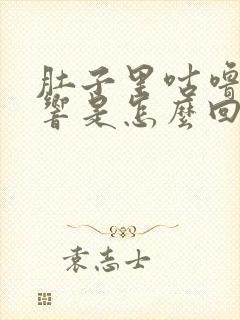 肚子里咕噜
響是怎麼回
袁志士